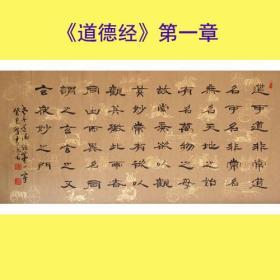 《道德经》第一章
道可道非常道
名可名非常名
無名天地之始
有名萬物之母
故常無欲以
觀其妙常有欲以
觀其徼此兩者同
出而異名同
謂之玄玄之又
玄眾妙之門